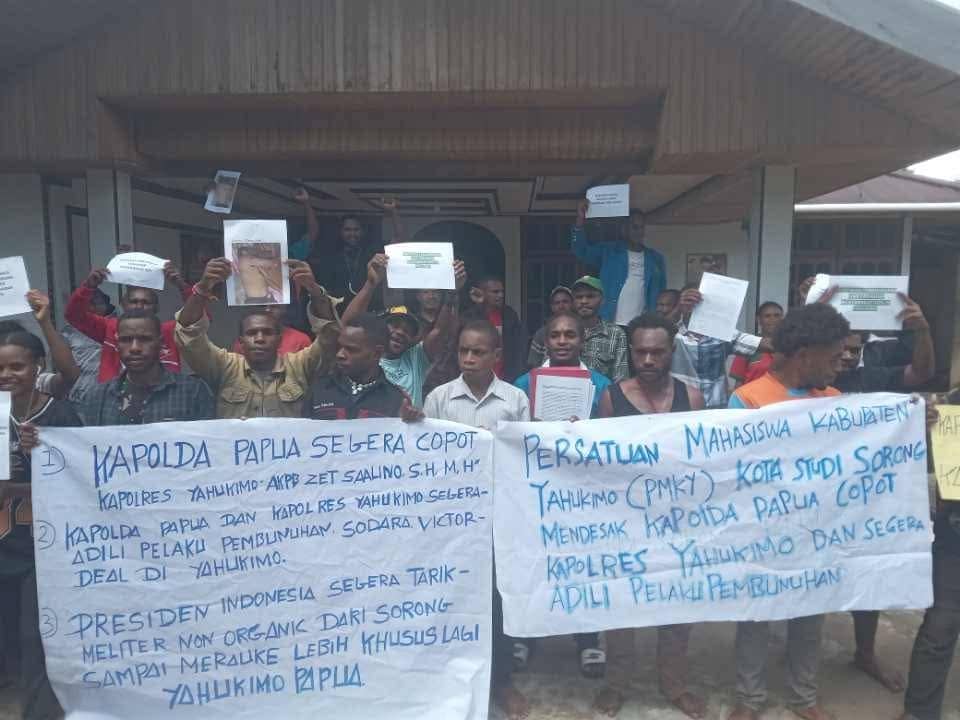 1) KAPOLDA PAPUA SEGERA COPOT
KAPOLRES YAHUKIMO-AKPB ZET SAALINO. S.H, M, H"
2) KAPOLDA PAPUA DAN KAPOLRES YAHUKIMO SEGERA-
ADILI PELAKU PEMBUNUHAN. SODARA. VICTOR-
DEAL DI YAHUKIMO.
3) PRESIDEN INDONESIA SEGERA TARIK-
MELITER NON ORGANIC DARI SORONG
SAMPAI MERAUKE LEBIH KHUSUS LAGI
YAHUKIMO PAPUA.
PERSATUAN MAHASISWA KABUPATEN
YAHUKIMO (PMKY) KOTA STUDI SORONG
MENDESAK KAPOLDA PAPUA COPOT
KAPOLRES YAHUKIMO DAN SEGERA
ADILI PELAKU PEMBUNUHAN